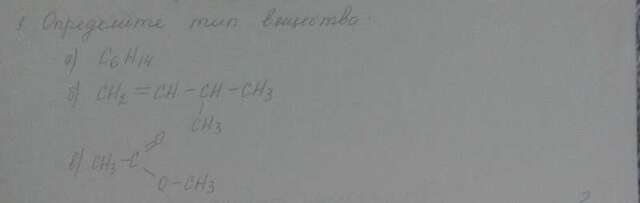 1 Определите тип вещества.
а) C6H14
б) CH2=CH-CH-CH3
CH3
O
в) CH3-C
O-CH3